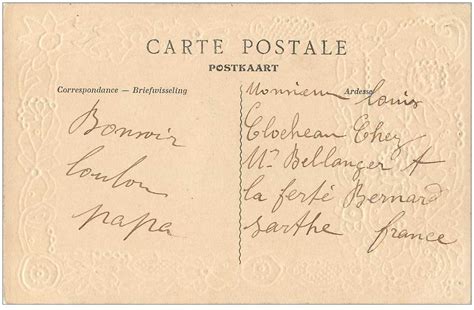 CARTE POSTALE
POSTKAART
Correspondance — Briefwisseling
Bonsoir
loulou
papa
Adresse
Monsieur Louis
Clocheau Chez
Mr Bellanger A
la ferté Bernard
sarthe france